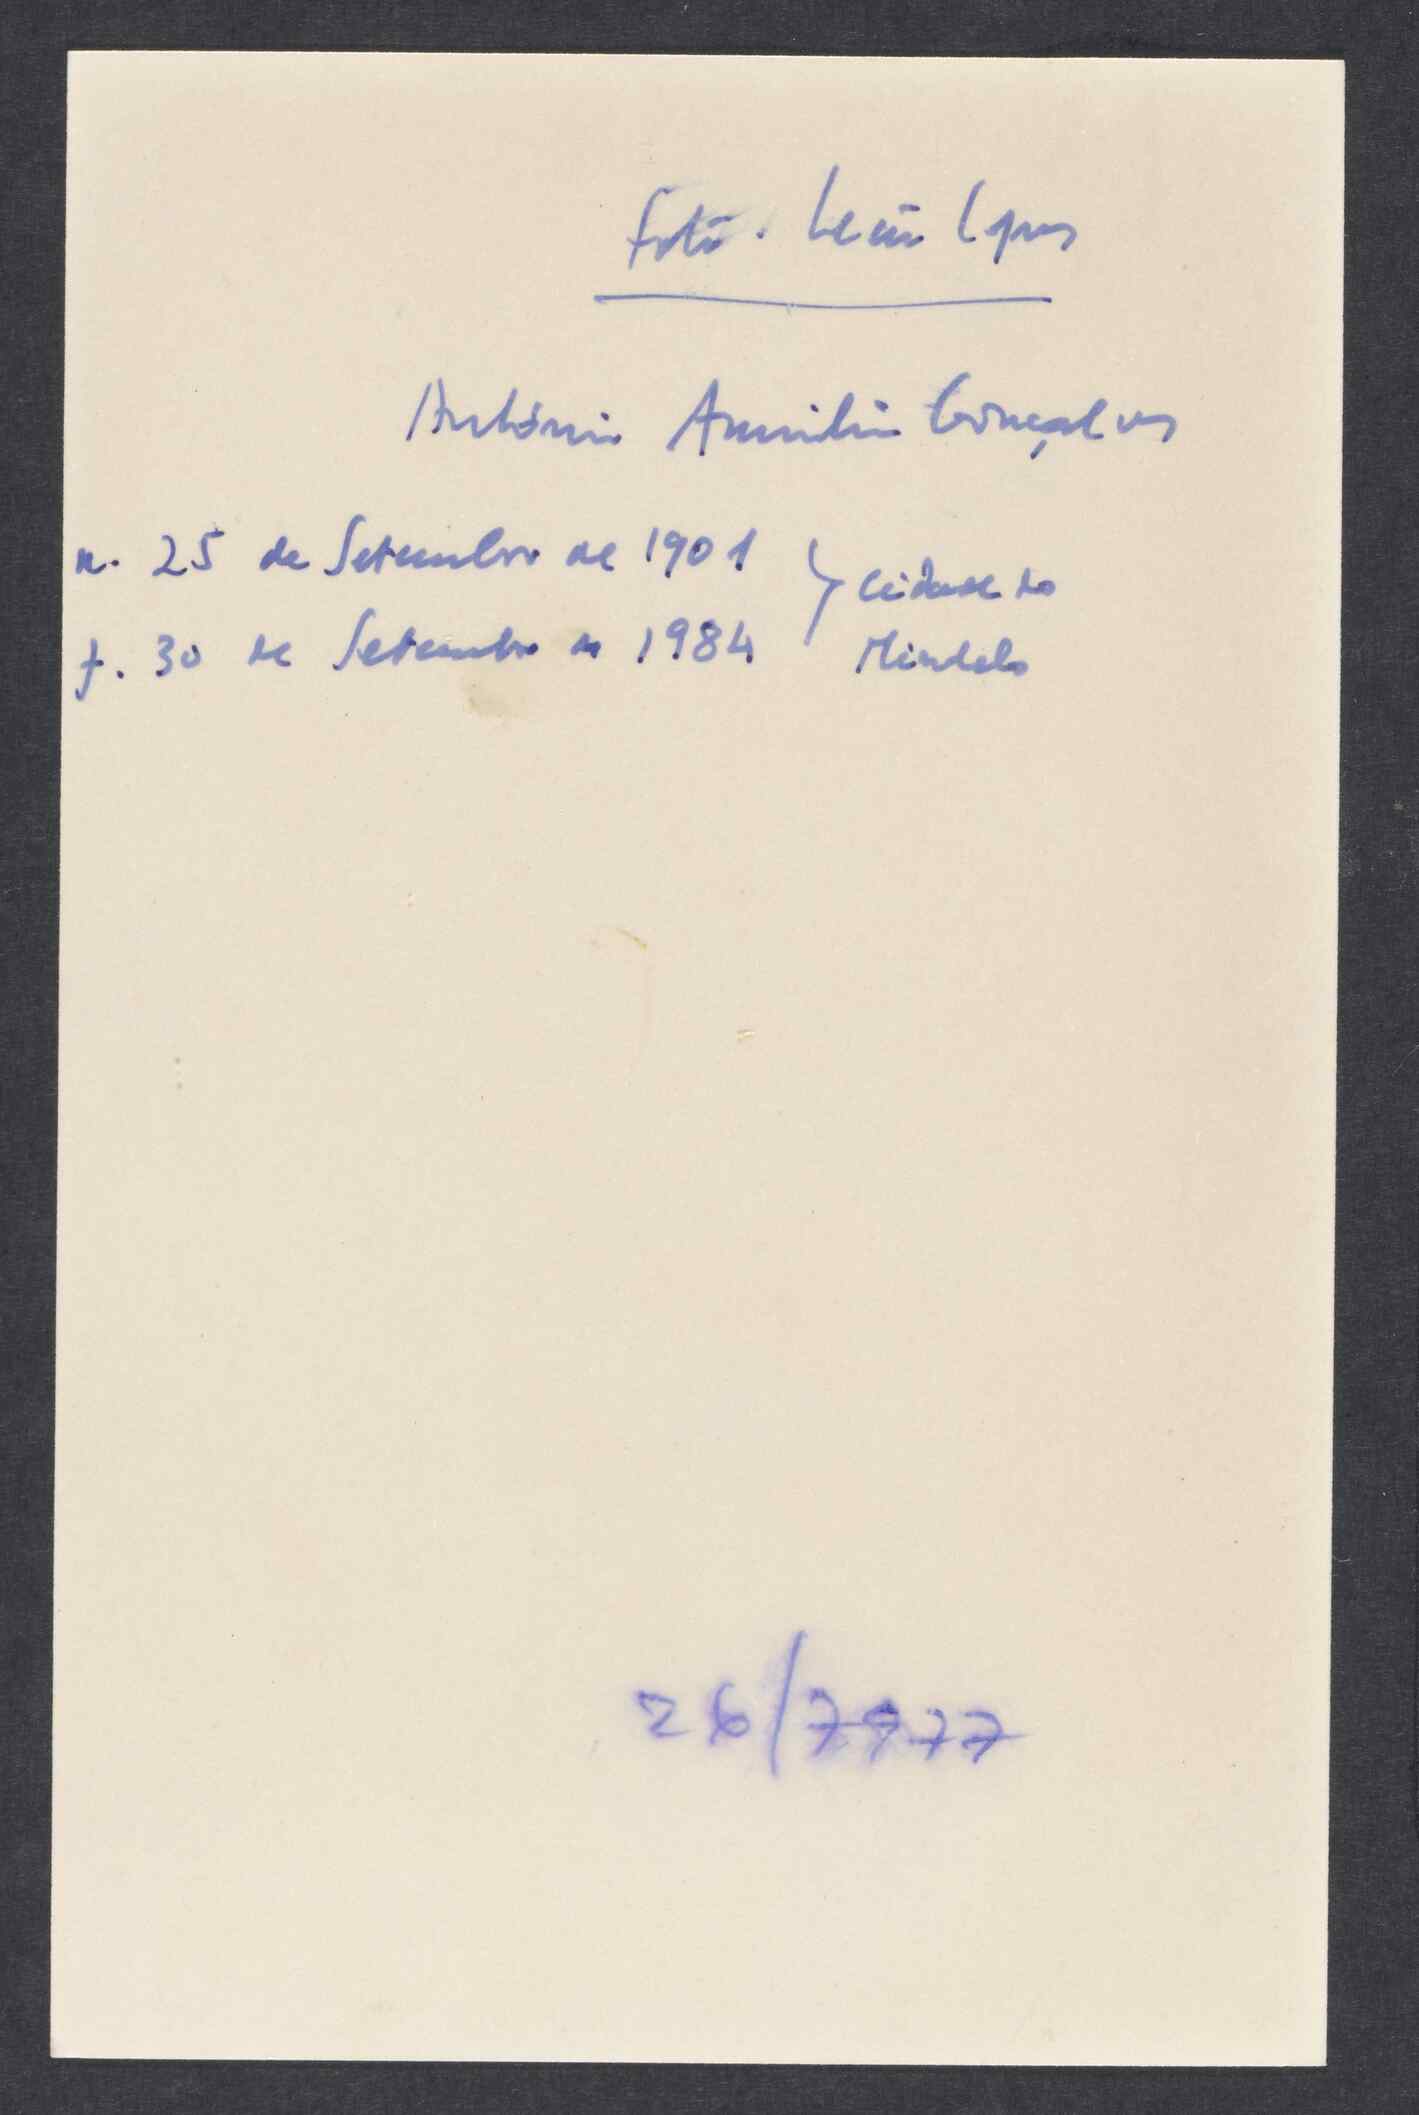 Foto. Leão Lopes
António Aurélio Gonçalves
n. 25 de Setembro de 1901
f. 30 de Setembro de 1984
Cidade do
Mindelo
26/7977